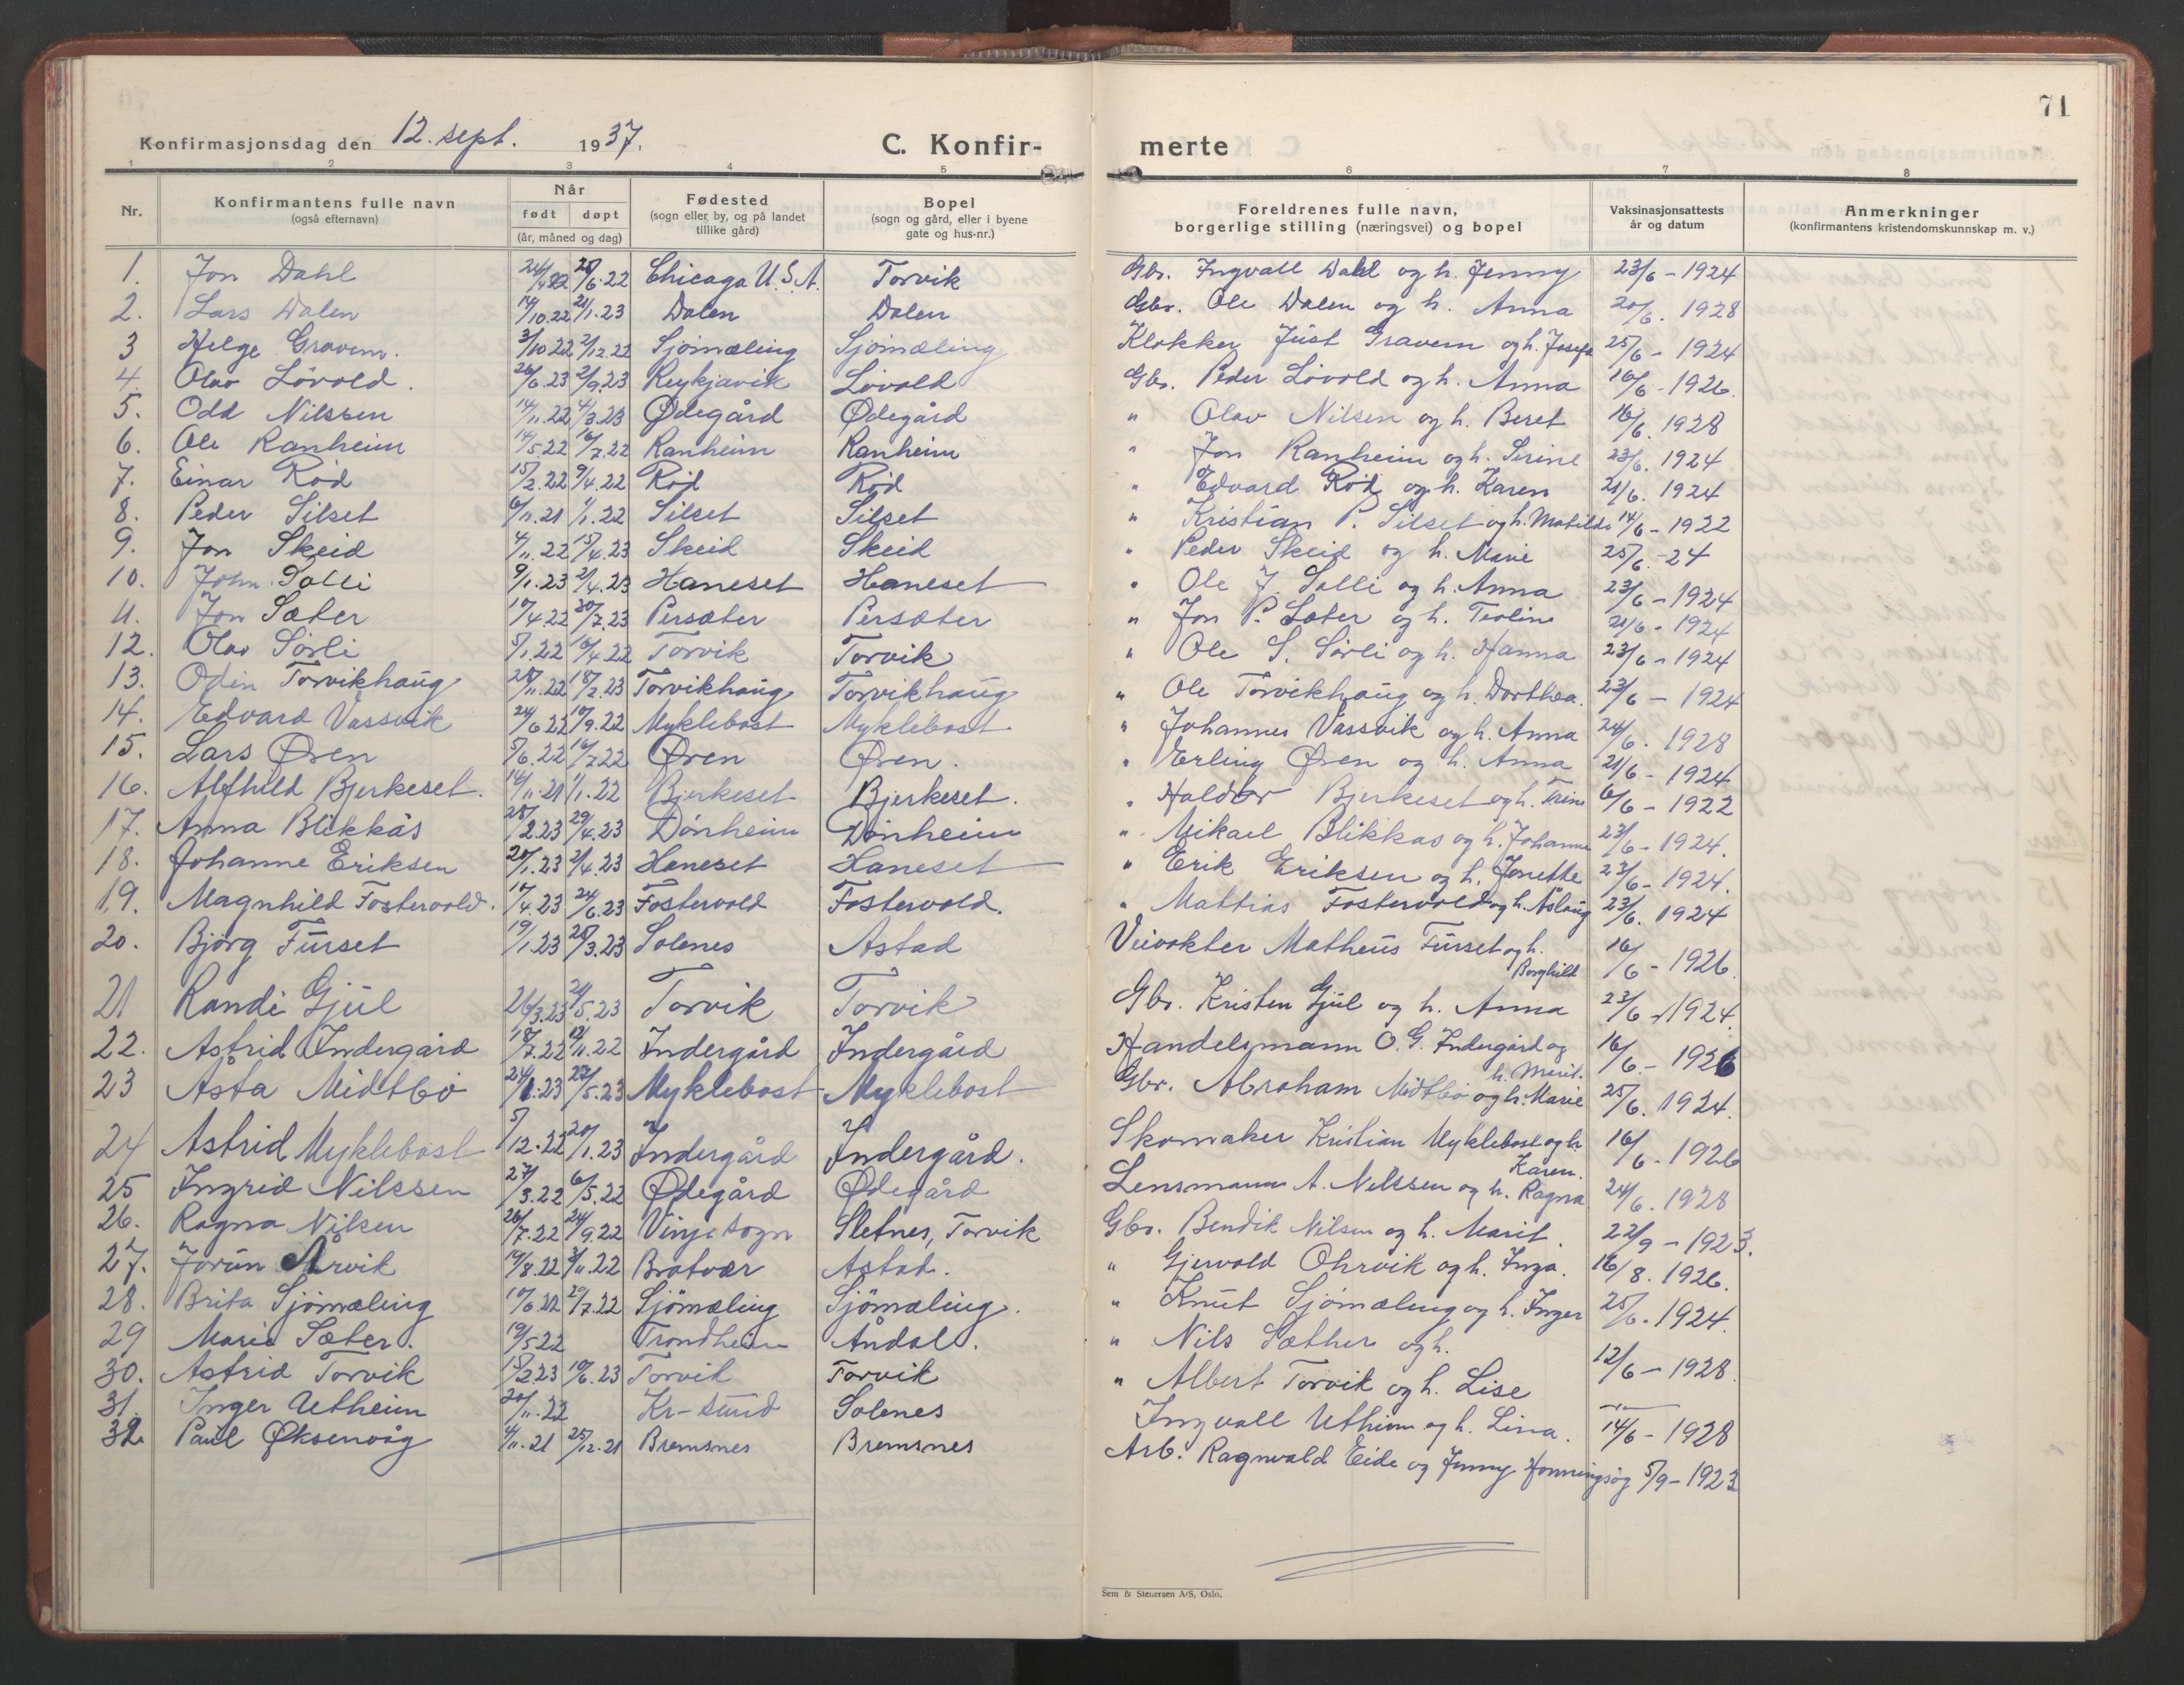 71
Konfirmasjonsdag den 12. sept. 1937.
C. Konfir-
merte
1 2 3 4 5 6 7 8
Nr.
Konfirmantens fulle navn
(også efternavn)
Når
født døpt
(år, måned og dag)
Fødested
(sogn eller by, og på landet
tillike gård)
Bopel
(sogn og gård, eller i byene
gate og hus-nr.)
Foreldrenes fulle navn,
borgerlige stilling (næringsvei) og bopel
Vaksinasjonsattests
år og datum
Anmerkninger
(konfirmantens kristendomskunnskap m. v.)
1. Jon Dahl 24/4 22 25/6.22 Chicago U.S.A. Torvik Gbr. Ingvall Dahl og h. Jenny 23/6 - 1924
2. Lars Dalen 14/10.22 21/1.23 Dalen Dalen Gbr. Ole Dalen og h. Anna 20/6. 1928
3 Helge Gravem. 3/10 22 2/12.22 Sjömæling Sjömæling Klokker Just Gravem og h. Josefa 25/6 - 1924
4. Olav Lövold. 26/6.23 2/9.23 Reykjavik Lövold Gbr. Peder Lövold og h. Anna 16/6 - 1926.
5. Odd Nilssen 14/11.22 4/3.23 Ødegård Ødegård " Olav Nilsen og h. Beret 16/6. 1928
6. Ole Ranheim 14/5.22 16/7.22 Ranheim Ranheim " Jon Ranheim og h. Serine 23/6. 1924
7. Einar Röd 15/2.22 9/4.22 Röd Röd " Edvard Röd og h. Karen 21/6. 1924
8. Peder Silset 6/11.21 1/1.22 Silset Silset " Kristian P. Silset og h. Matilde 14/6 - 1922
9. Jon Skeid 4/11.22 15/4.23 Skeid Skeid " Peder Skeid og h. Marie 25/6.-24
10. John Solli 9/1.23 2/4.23 Haneset Haneset " Ole J. Solli og h. Anna 23/6 - 1924
11. Jon Sæter 10/4 22 30/7.23 Persæter Persæter " Jon P. Sæter og h. Teoline 21/6 - 1924
12. Olav Sörli 5/1.22 16/4.22 Torvik Torvik " Ole S. Sörli og h. Hanna 23/6 - 1924
13. Odin Torvikhaug 28/11.22 18/2.23 Torvikhaug Torvikhaug " Ole Torvikhaug og h. Dorthea. 23/6 - 1924
14. Edvard Vassvik 24/6 22 10/9.22 Myklebost Myklebost. " Johannes Vassvik og h. Anna 24/6. 1928
15. Lars Øren 5/6.22 16/7 22 Øren Øren. " Erling Øren og h. Anna 21/6 - 1924
16. Alfhild Bjerkeset. 14/11.21 1/1.22 Bjerkeset Bjerkeset. " Haldor Bjerkeset og h. Trine 6/6 - 1922
17. Anna Blikkås 25/2.23 29/4.23 Dönheim Dönheim " Mikael Blikkas og h. Johanne 23/6 - 1924.
18. Johanne Eriksen 20/1.23 2/4.23 Haneset Haneset " Erik Eriksen og h. Jonette 23/6 - 1924.
19. Magnhild Fostervold. 17/4.23 24/6.23 Fostervold Fostervold. " Mattias Fostervold og h. Åslaug 23/6. 1924
20. Björg Furset 19/1.23 25/3.23 Solenes Astad Veivokter Matheus Furset og h. Borghild 16/6 - 1926.
21 Randi Gjül 26/3.23 20/5.23 Torvik Torvik Gbr. Kristen Gjül og h. Anna 23/6 - 1924.
22. Astrid Indergård 18/7.22 12/11.22 Indergård Indergård Handelsmann O. G. Indergård og h. Marit. 16/6. - 1926
23 Åsta Midtbö 24/1.23 27/5.23 Myklebost Myklebost Gbr. Abraham Midtbö og h. Marie 25/6. 1924.
24 Astrid Myklebost 5/12.22 20/1.23 Indergård Indergård. Skomaker Kristian Myklebost og h. Karen. 16/6 - 1926
25 Ingrid Nilssen 27/3.22 6/5.22 Ødegård Ødegård Lensmann A. Nilssen og h. Ragna 24/6. 1928
26. Ragna Nilsen 26/7.22 24/9.22 Vinje sogn Sletnes, Torvik Gbr. Bendik Nilsen og h. Marit. 22/9 - 1923.
27. Jorun Årvik 19/8.22 3/11.22 Bratvær Astad. " Gjervold Ohrvik og h. Inga. 16/8. 1926.
28. Brita Sjömæling 10/6.22 29/7.22 Sjömæling Sjömæling. " Knut Sjömæling og h. Inger 25/6. 1924.
29 Marie Sæter. 19/5.22 Trondheim Åndal. " Nils Sæther og h. 12/6 - 1928.
30. Astrid Torvik 15/2.23 10/6.23 Torvik Torvik " Albert Torvik og h. Lise -"-
31. Inger Uetheim 20/11.22 Kr-sund Solenes Ingvall Utheim og h. Lina. 14/6 - 1928
32. Paul Øksenvåg 4/11.21 25/12.21 Bremsnes Bremsnes Arb. Ragnvald Eide og Jenny 5/9 - 1923
Sem & Stenersen A/S, Oslo.